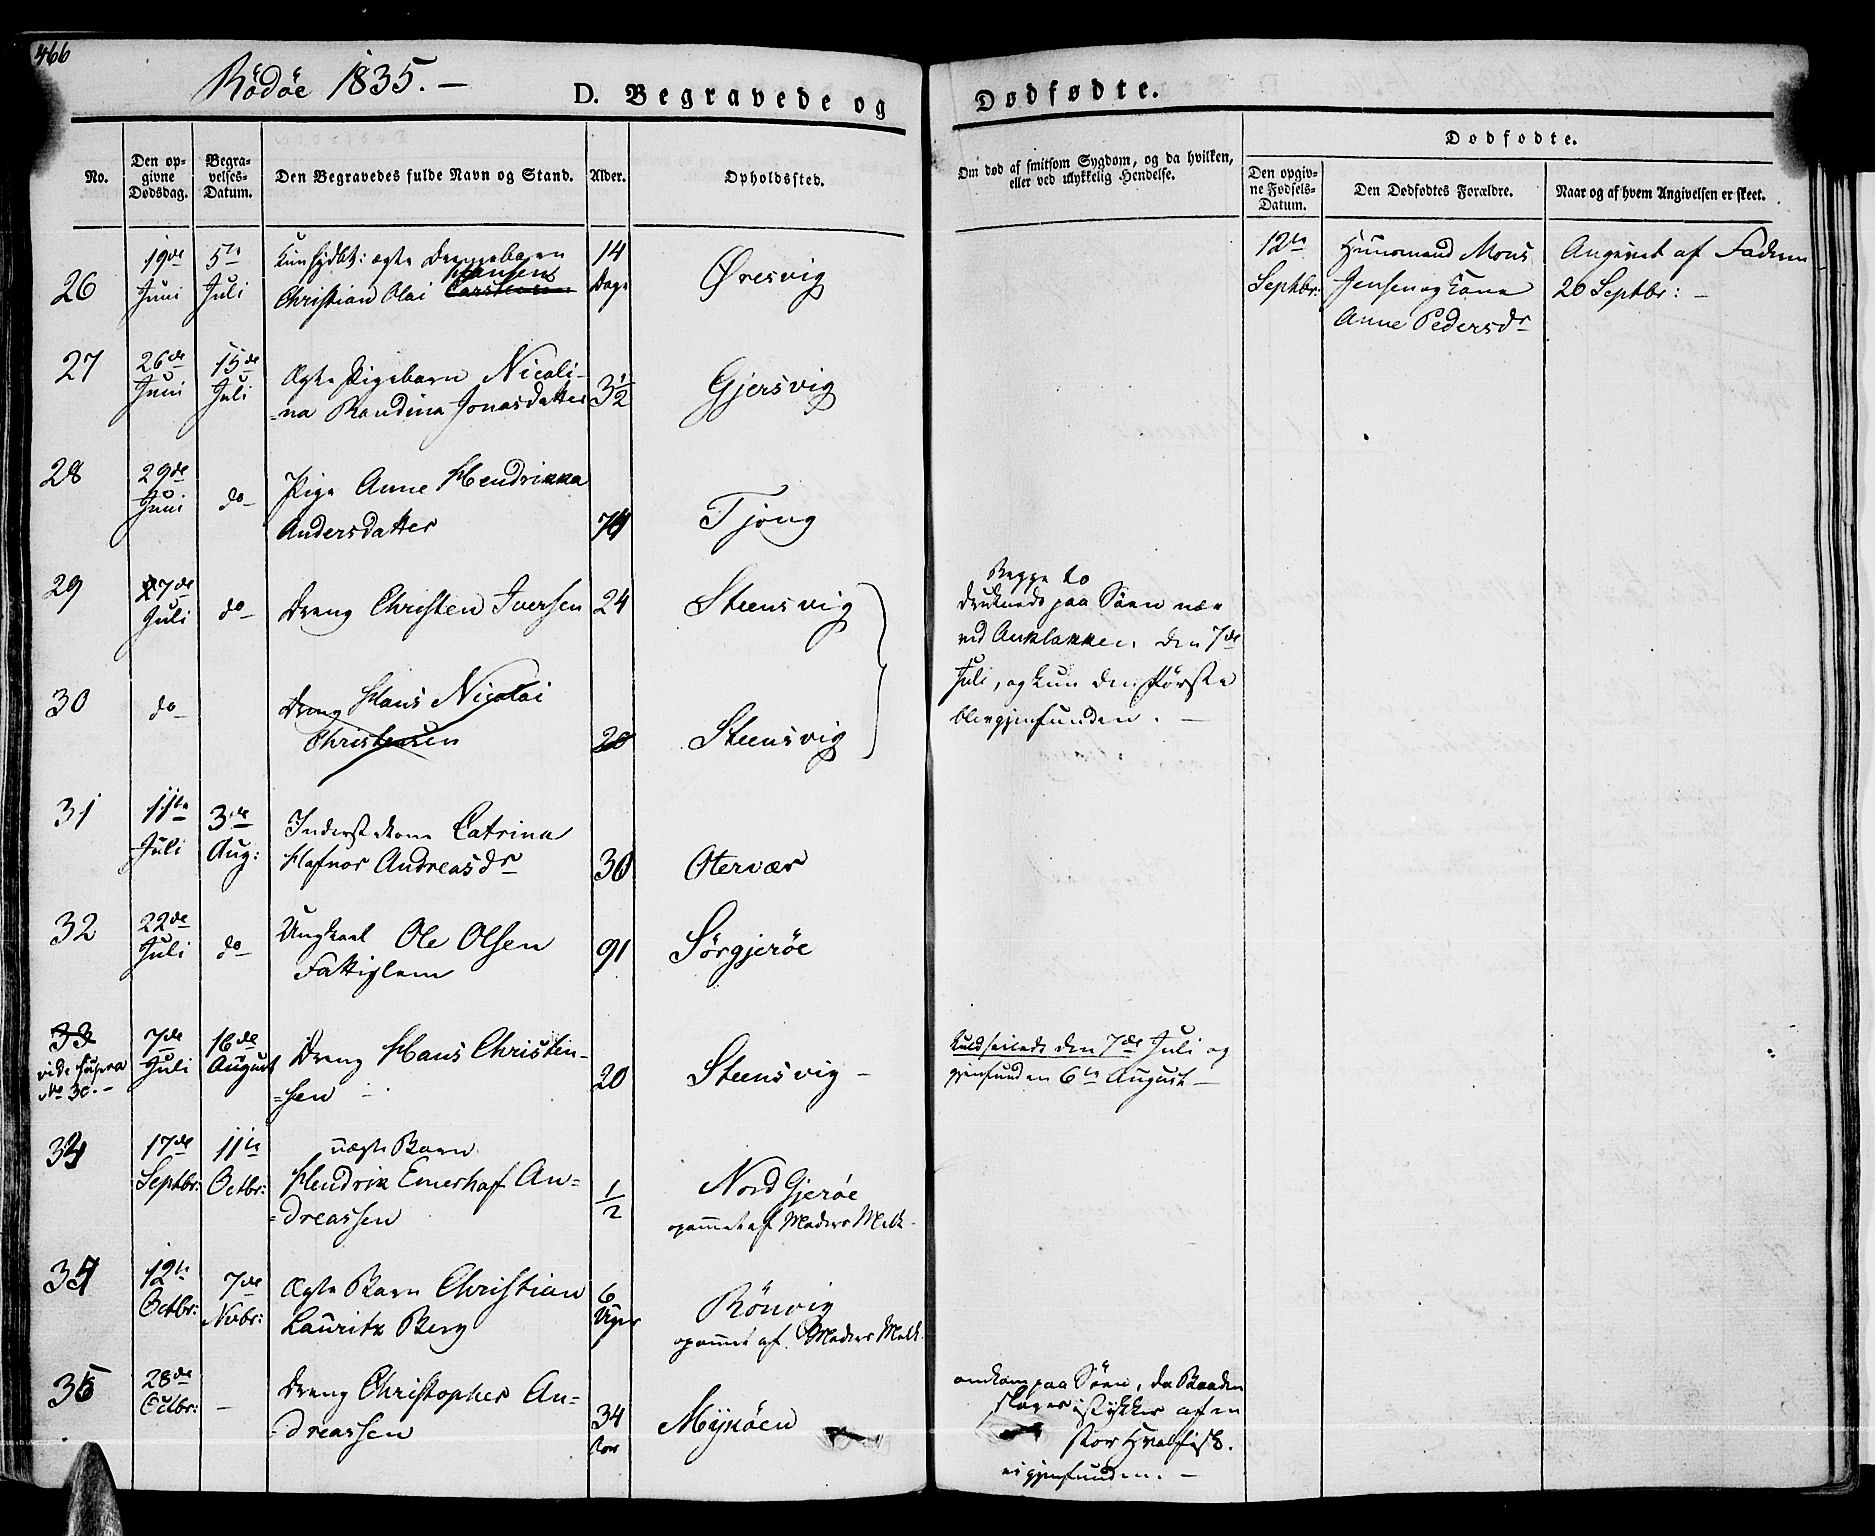 466
Rödöe 1835. —
D. Begravede og
Dødfødte.
No.
Den op-
givne
Dødsdag.
Begra-
velses-
Datum.
Den Begravedes fulde Navn og Stand.
Alder.
Opholdssted.
Om død af smitsom Sygdom, og da hvilken,
eller ved ulykkelig Hendelse.
Dødfødte.
Den opgiv-
ne Fødsels-
Datum.
Den Dødfødtes Forældre.
Naar og af hvem Angivelsen er skeet.
26
19de
Juni
5te
Juli
ægte Drengebarn
Hansen
Christian Olai Carstensen
14
Dage
Øresvig
12te
Septbr:
Huusmand Mons
Jensen og Kone
Anne Pedersdr
Angivet af Faderen
20 Septbr: —
27
26de
Juni
15de
Juli
Ægte Pigebarn Nicoli-
=na Randina Jonasdatter
3½
Gjersvig
28
29de
Juni
do
Pige Anne Hendrikka
Andersdatter
74
Tjong
29
7de
Juli
do
Dreng Christen Iversen
24
Steensvig
Begge to
druknede paa Søen nær
ved Anklakken den 7de
Juli, og kun den første
blev gjenfunden. —
30
do
Dreng Hans Nicolai
Christensen
20
Steensvig
31
11te
Juli
3de
Aug:
Inderst Kone Catrina
Hafnor Andreasdr
30
Otervær
32
22de
Juli
do
Ungkarl Ole Olsen
Fattiglem
91
Sörgjeröe
33
vide supra
No 30. —
7de
Juli
16de
August
Dreng Hans Christen-
=sen
20
Steensvig —
kuldseilede den 7de Juli og
gjenfunden 6te August —
34
17de
Septbr:
11te
Octbr:
uægte Barn
Hendrik Emerhof An=
=dreassen
½
Nord Gjeröe
opammet af Moders Melk.
35
12te
Octbr:
7de
Novbr:
Ægte Barn Christian
Lauritz Berg
6
Uger
Rönvig
opammet af Moders Melk.
36
28de
Octbr:
—
Dreng Christopher An=
=dreassen
34
Aar
Myköen
omkom paa Søen, da Baaden
sloges i stykker af en
stor Hvalfisk.
ei gjenfunden. —